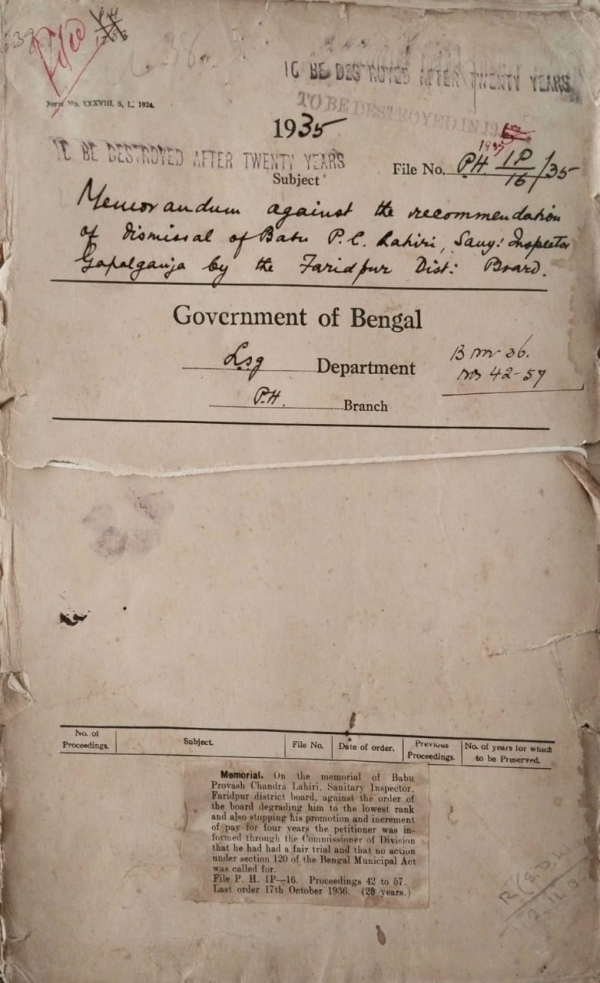 Filed
TO BE DESTROYED AFTER TWENTY YEARS
Form No. XXXVIII, S, L, 1924.
TO BE DESTROYED IN
1935
TO BE DESTROYED AFTER TWENTY YEARS
File No. P.H. 1P/16/35
Subject
Memorandum against the recommendation
of dismissal of Babu P. C. Lahiri, Sany: Inspector
Gopalganja by the Faridpur Dist: Board.
Government of Bengal
Lsg Department
42-57
P.H. Branch
No. of Proceedings. Subject. File No. Date of order. Previous Proceedings. No. of years for which to be Preserved.
Memorial. On the memorial of Babu
Provash Chandra Lahiri, Sanitary Inspector,
Faridpur district board, against the order of
the board degrading him to the lowest rank
and also stopping his promotion and increment
of pay for four years the petitioner was in-
formed through the Commissioner of Division
that he had had a fair trial and that no action
under section 120 of the Bengal Municipal Act
was called for.
File P. H. 1P—16. Proceedings 42 to 57.
Last order 17th October 1936. (20 years.)